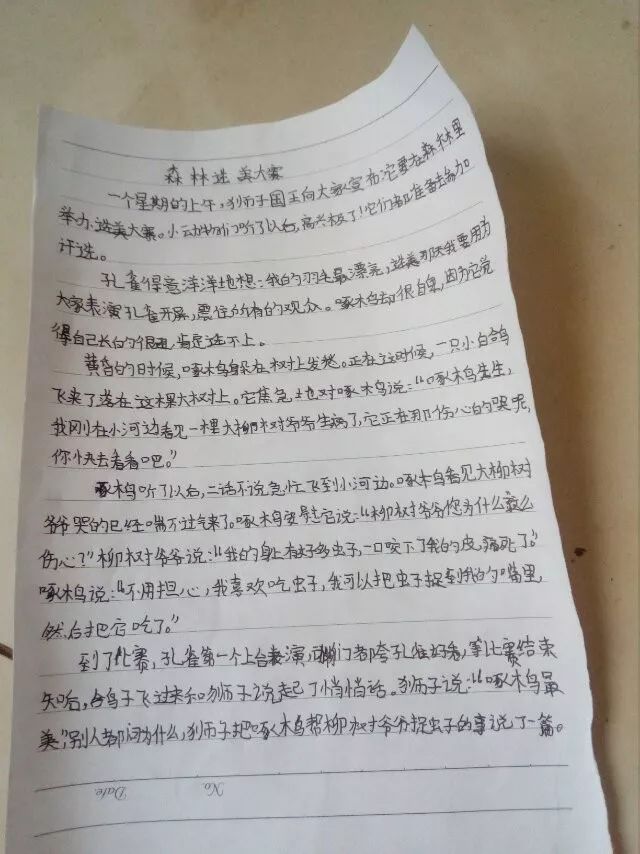 森林选美大赛
一个星期的上午,狮子国王向大家宣布它要在森林里
举办选美大赛。小动物们听了以后,高兴极了!它们都准备去参加
评选。
孔雀得意洋洋地想:我的羽毛最漂亮,选美那天我要用为
大家表演孔雀开屏,票住所有的观众。啄木鸟却很自卑,因为它觉
得自己长的很丑,肯定选不上。
黄昏的时候,啄木鸟躲在树上发愁。正在这时候,一只小白鸽
飞来了落在这棵大树上。它焦急地对啄木鸟说:“啄木鸟先生,
我刚在小河边看见一棵大柳树爷爷生病了,它正在那伤心的哭呢,
你快去看看吧。”
啄木鸟听了以后,二话不说急忙飞到小河边。啄木鸟看见大柳树
爷爷哭的已经喘不过气来了。啄木鸟对它说:“柳树爷爷您为什么这么
伤心?”柳树爷爷说:“我的身上有好多虫子,一口咬下了我的皮,痛死了。”
啄木鸟说:“不用担心,我喜欢吃虫子,我可以把虫子捉到我的嘴里,
然后把它吃了。”
到了比赛,孔雀第一个上台表演,们都夸孔雀好看,等比赛结束
知后,鸽子飞过来和狮子说起了悄悄话。狮子说:“啄木鸟最
美”,别人都问为什么,狮子把啄木鸟帮柳树爷爷捉虫子的事说了一篇。
No.
Date